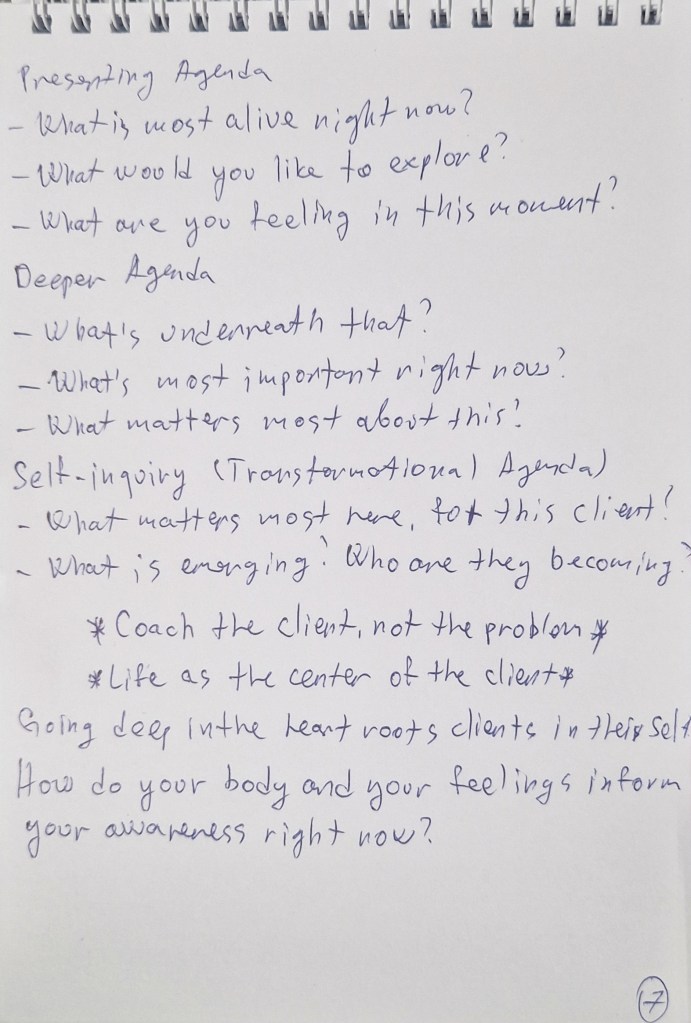 Presenting Agenda
- What is most alive right now?
- What would you like to explore?
- What are you feeling in this moment?
Deeper Agenda
- What's underneath that?
- What's most important right now?
- What matters most about this?
Self-inquiry (Transformational Agenda)
- What matters most here, for this client?
- What is emerging? Who are they becoming?
*Coach the client, not the problem*
*Life as the center of the client*
Going deep in the heart roots clients in their Self
How do your body and your feelings inform
your awareness right now?
17